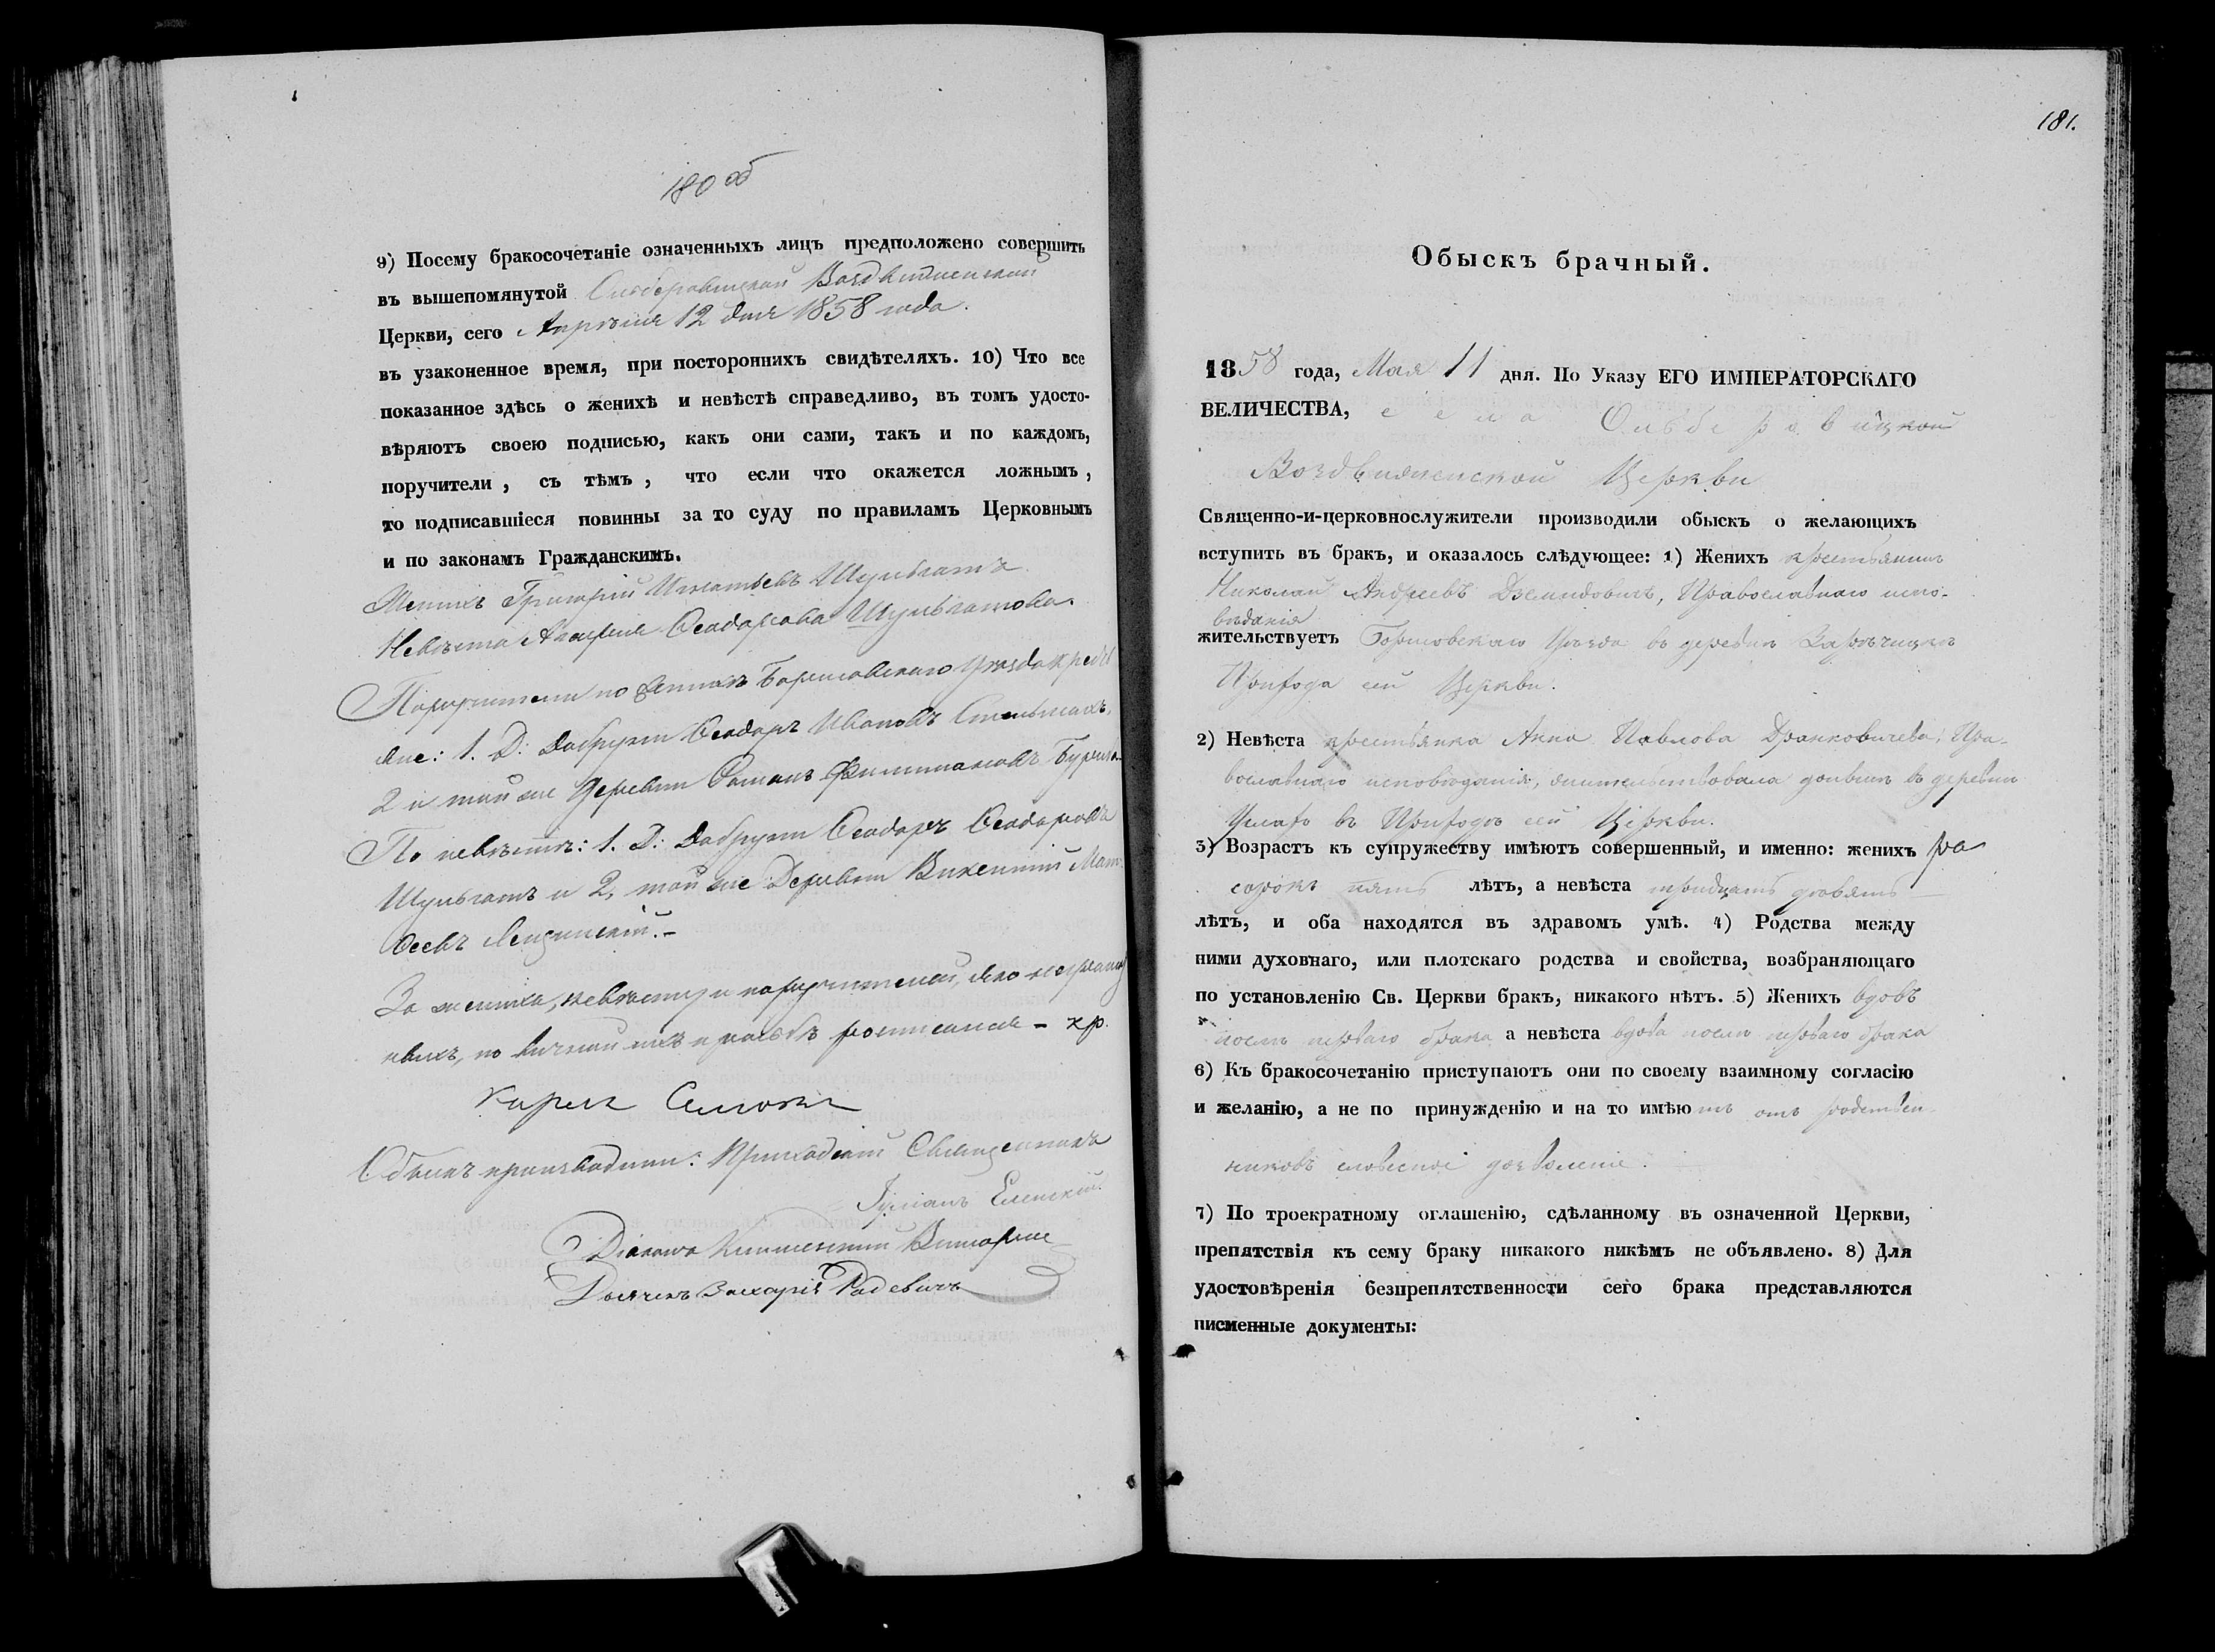 180 об
9) Посему бракосочетаніе означенныхъ лицъ предположено совершить
въ вышепомянутой Ольберовицкой Воздвиженской
Церкви, сего Апрѣля 12 дня 1858 года.
въ узаконенное время, при постороннихъ свидѣтеляхъ. 10) Что все
показанное здѣсь о женихѣ и невѣстѣ справедливо, въ томъ удосто-
вѣряютъ своею подписью, какъ они сами, такъ и по каждомъ,
поручители, съ тѣмъ, что если что окажется ложнымъ,
то подписавшіеся повинны за то суду по правиламъ Церковнымъ
и по законамъ Гражданскимъ.
Женихъ Григорій Игнатьевъ Шульгатъ
Невѣста Агафія Ѳеодорова Шульгатова.
Поручители по женихѣ Борисовскаго уѣзда
1. Д: Ѳеодоръ Ивановъ
2 и той же Деревни
По невѣстѣ: 1. Д: Ѳеодоръ Ѳеодоровъ
Шульгатъ и 2, той же Деревни Викентій Мат
ѳеевъ
За жениха, невѣсту и поручителей, яко неграмот
ныхъ, по личной ихъ просьбѣ росписался – кр.
Обыскъ производили: Приходскій Священникъ
Еленскій
Діаконъ
Дьячекъ Захарія Радевичъ
181.
Обыскъ брачный.
1858 года, Мая 11 дня. По Указу ЕГО ИМПЕРАТОРСКАГО
ВЕЛИЧЕСТВА, села Ольберовицкой
Воздвиженской Церкви
Священно-и-церковнослужители производили обыскъ о желающихъ
вступить въ брак, и оказалось слѣдующее: 1) Женихъ крестьянинъ
Николай Андреевъ Демидовичъ, Православнаго испо-
вѣданія
жительствуетъ Борисовскаго Уѣзда въ деревнѣ
Прихода сей Церкви.
2) Невѣста крестьянка Анна Павлова Дранковичева, Пра-
вославнаго исповѣданія, жительствовала донынѣ въ деревнѣ
въ Приходѣ сей Церкви.
3) Возрастъ къ супружеству имѣютъ совершенный, и именно: женихъ
сорокъ пять лѣтъ, а невѣста тридцать девять
лѣтъ, и оба находятся въ здравомъ умѣ. 4) Родства между
ними духовнаго, или плотскаго родства и свойства, возбраняющаго
по установленію Св. Церкви брак, никакого нѣтъ. 5) Женихъ вдовъ
послѣ перваго брака а невѣста вдова послѣ перваго брака
6) Къ бракосочетанію приступаютъ они по своему взаимному согласію
и желанію, а не по принужденію и на то имѣютъ отъ родствен-
никовъ словесное дозволеніе.
7) По троекратному оглашенію, сдѣланному въ означенной Церкви,
препятствія къ сему браку никакого никѣмъ не объявлено. 8) Для
удостовѣренія безпрепятственности сего брака представляются
писменные документы: